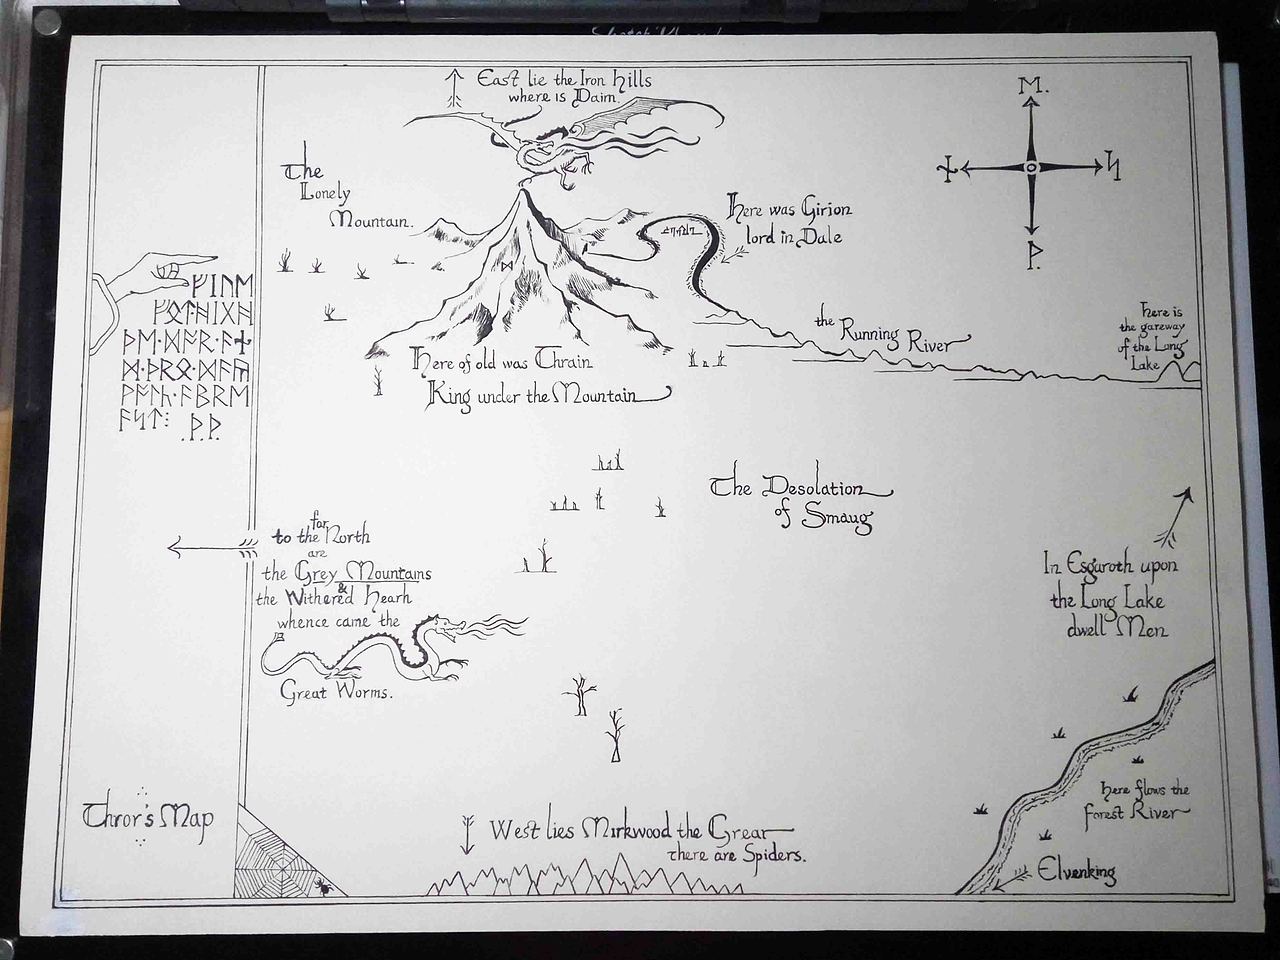 East lie the Iron Hills
where is Dain.
The
Lonely
Mountain.
M.
ᚦ.
Here was Girion
lord in Dale
ᚠᛁᚢᛖ
ᚠᛟᛏ᛫ᚻᛁᚷᚻ
ᚦᛖ᛫ᛞᚩᚱ᛫ᚪᚾ
ᛞ᛫ᚦᚱᛟ᛫ᛗᚪᚣ
ᚹᚪᛚᚳ᛫ᚪᛒᚱᛖ
ᚪᛋᛏ⁝ .ᚦ.ᚦ.
the Running River
Here is
the gateway
of the Long
Lake
Here of old was Thrain
King under the Mountain
The Desolation
of Smaug
far
to the North
are
the Grey Mountains
&
the Withered Heath
whence came the
Great Worms.
In Esgaroth upon
the Long Lake
dwell Men
here flows the
Forest River
Elvenking
Thror's Map
West lies Mirkwood the Great
there are Spiders.